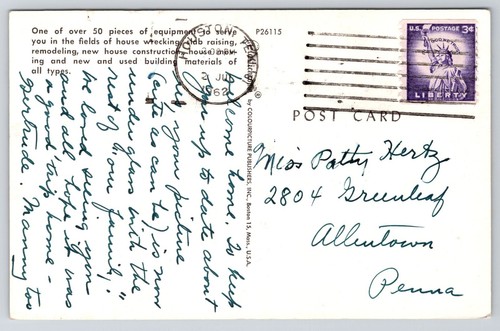 One of over 50 pieces of equipment to serve
you in the fields of house wrecking, slab raising,
remodeling, new house construction, house mov-
ing and new and used building materials of
all types.
P26115
HOUSTON, TEXAS
2 JUL
1962
U.S. POSTAGE 3¢
LIBERTY
POST CARD
by COLOURPICTURE PUBLISHERS, INC., Boston 15, Mass., U.S.A.
Welcome home. To keep
you up to date about
your picture
(cute as can be) is now
under glass with the
rest of our "family."
We loved seeing you
and all hope it was
a good trip home –
Gertrude. Mammy too
Miss Patty Hertz
2804 Greenleaf
Allentown
Penna